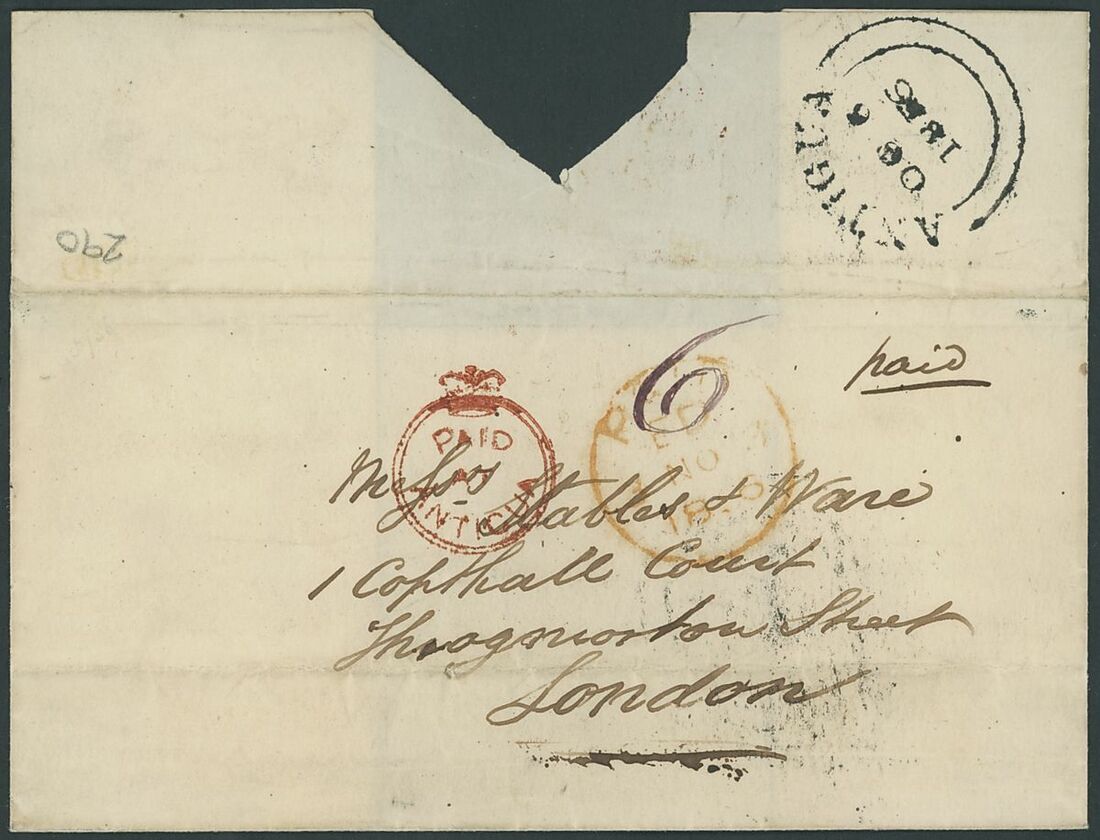 ANTIGUA
1856
290
6
paid
PAID
AT
ANTIGUA
NO
Messrs Stables & Ware
1 Copthall Court
Throgmorton Street
London